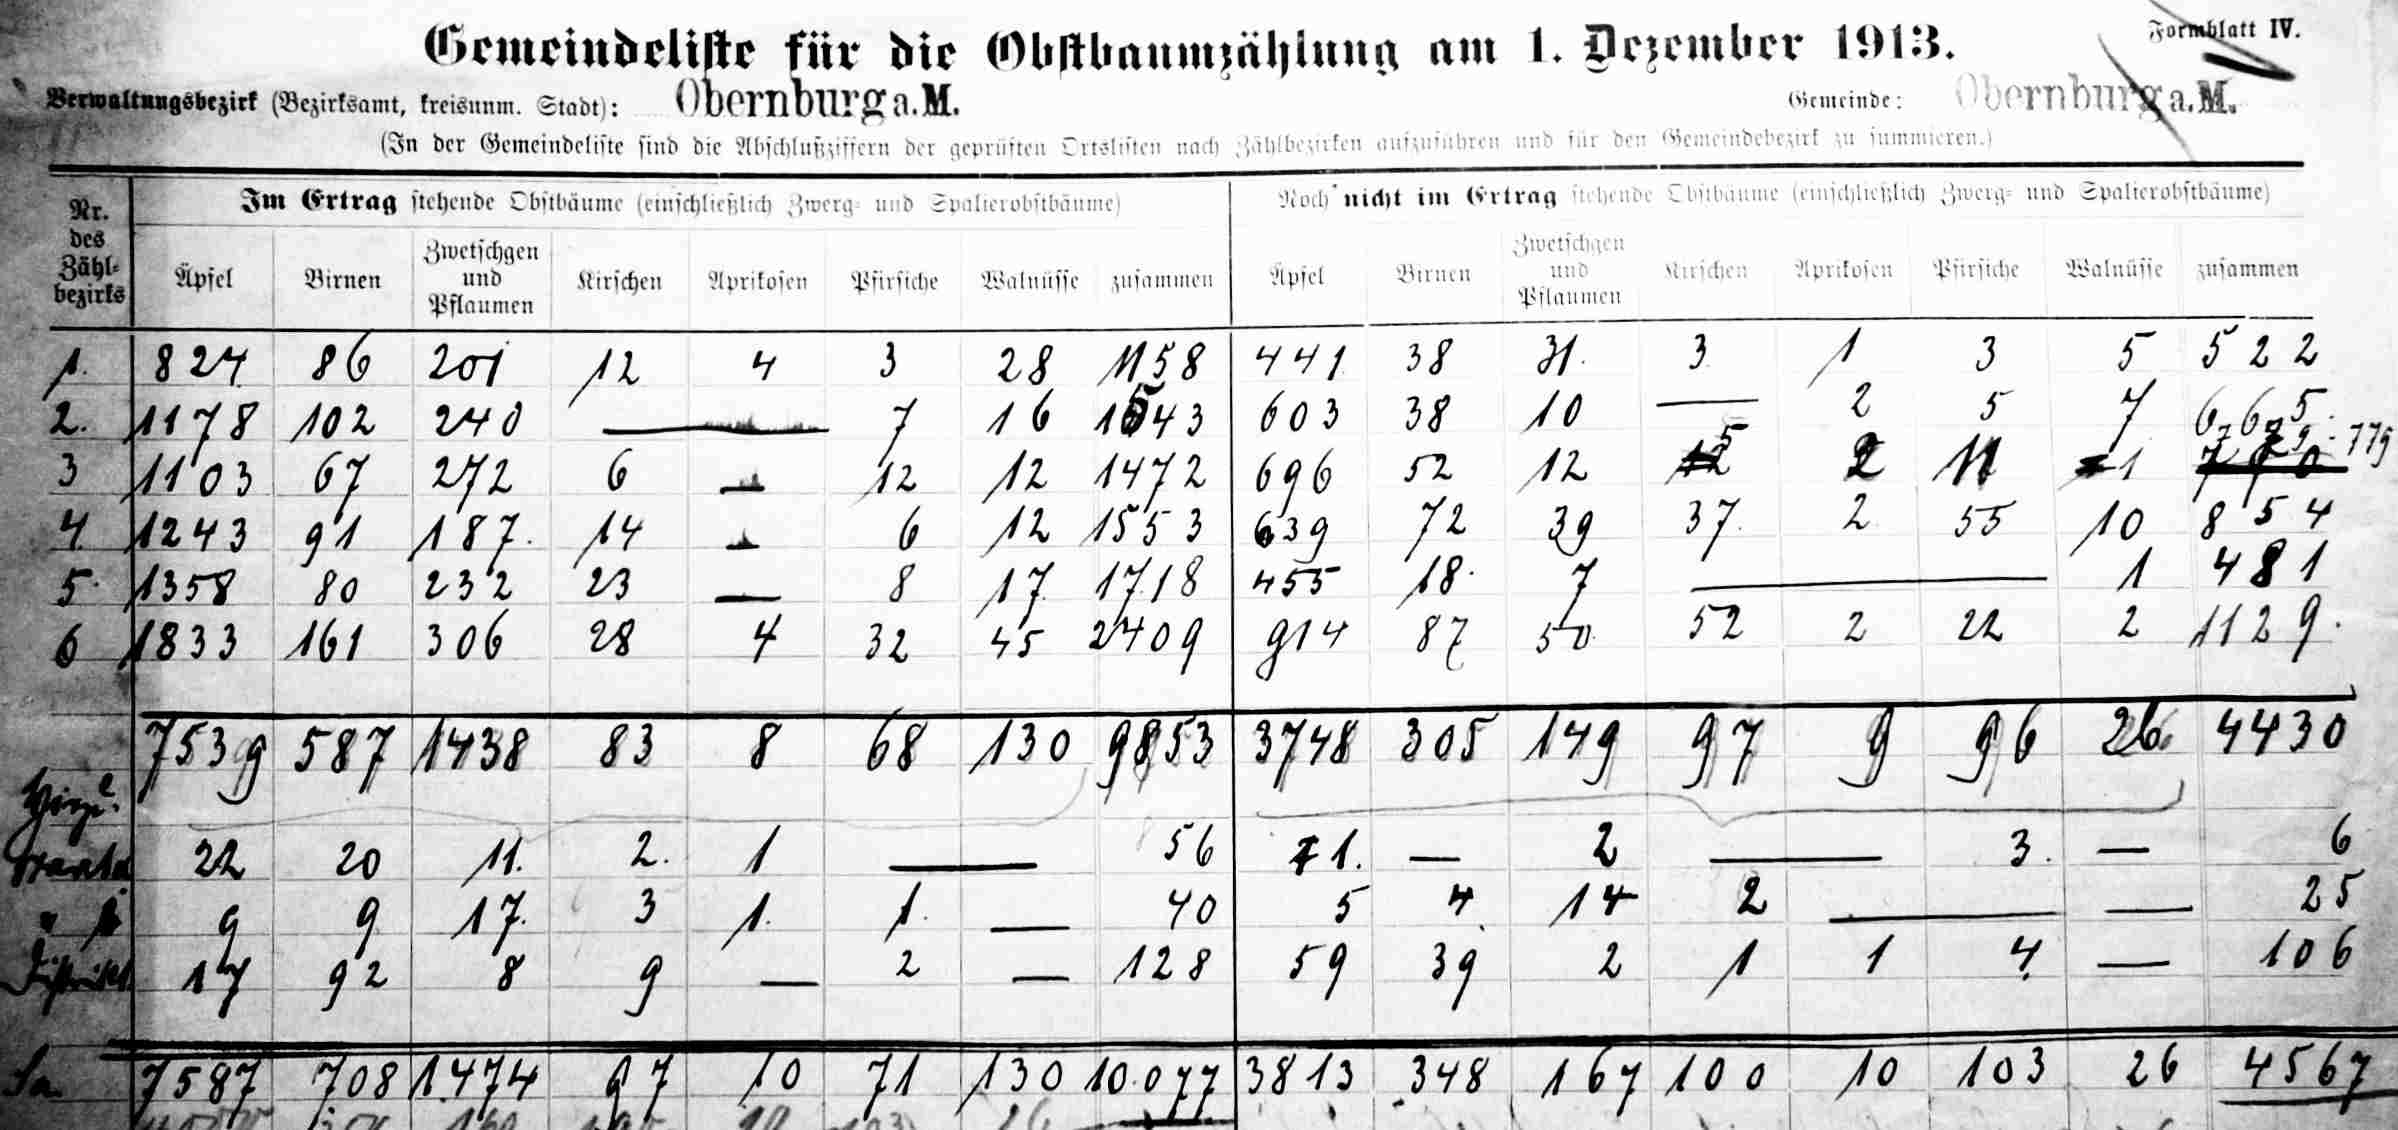 Formblatt IV.
Gemeindeliste für die Obstbaumzählung am 1. Dezember 1913.
Verwaltungsbezirk (Bezirksamt, kreisunm. Stadt): Obernburg a. M. Gemeinde: Obernburg a. M.
(In der Gemeindeliste sind die Abschlußziffern der geprüften Ortslisten nach Zählbezirken aufzuführen und für den Gemeindebezirk zu summieren.)
Nr. des Zähl-bezirks
Im Ertrag stehende Obstbäume (einschließlich Zwerg- und Spalierobstbäume) Noch nicht im Ertrag stehende Obstbäume (einschließlich Zwerg- und Spalierobstbäume)
Äpfel Birnen Zwetschgen und Pflaumen Kirschen Aprikosen Pfirsiche Walnüsse zusammen Äpfel Birnen Zwetschgen und Pflaumen Kirschen Aprikosen Pfirsiche Walnüsse zusammen
1. 824 86 201 12 4 3 28 1158 441 38 31. 3 1 3 5 522
2. 1178 102 240 — 7 16 1543 603 38 10 — 2 5 7 665.
3 1103 67 272 6 — 12 12 1472 696 52 12 5 2 11 1 779
4. 1243 91 187. 14 — 6 12 1553 639 72 39 37. 2 55 10 854
5. 1358 80 232 23 — 8 17. 1718 455 18. 7 — 1 481
6 1833 161 306 28 4 32 45 2409 914 87 50 52 2 22 2 1129.
7539 587 1438 83 8 68 130 9853 3748 305 149 97 9 96 26 4430
22 20 11. 2. 1 — 56 1. — 2 — 3. — 6
9 9 17. 3 1. 1. — 40 5 4 14 2 — — 25
17 92 8 9 — 2 — 128 59 39 2 1 1 4 — 106
Sa. 7587 708 1474 97 10 71 130 10.077 3813 348 167 100 10 103 26 4567